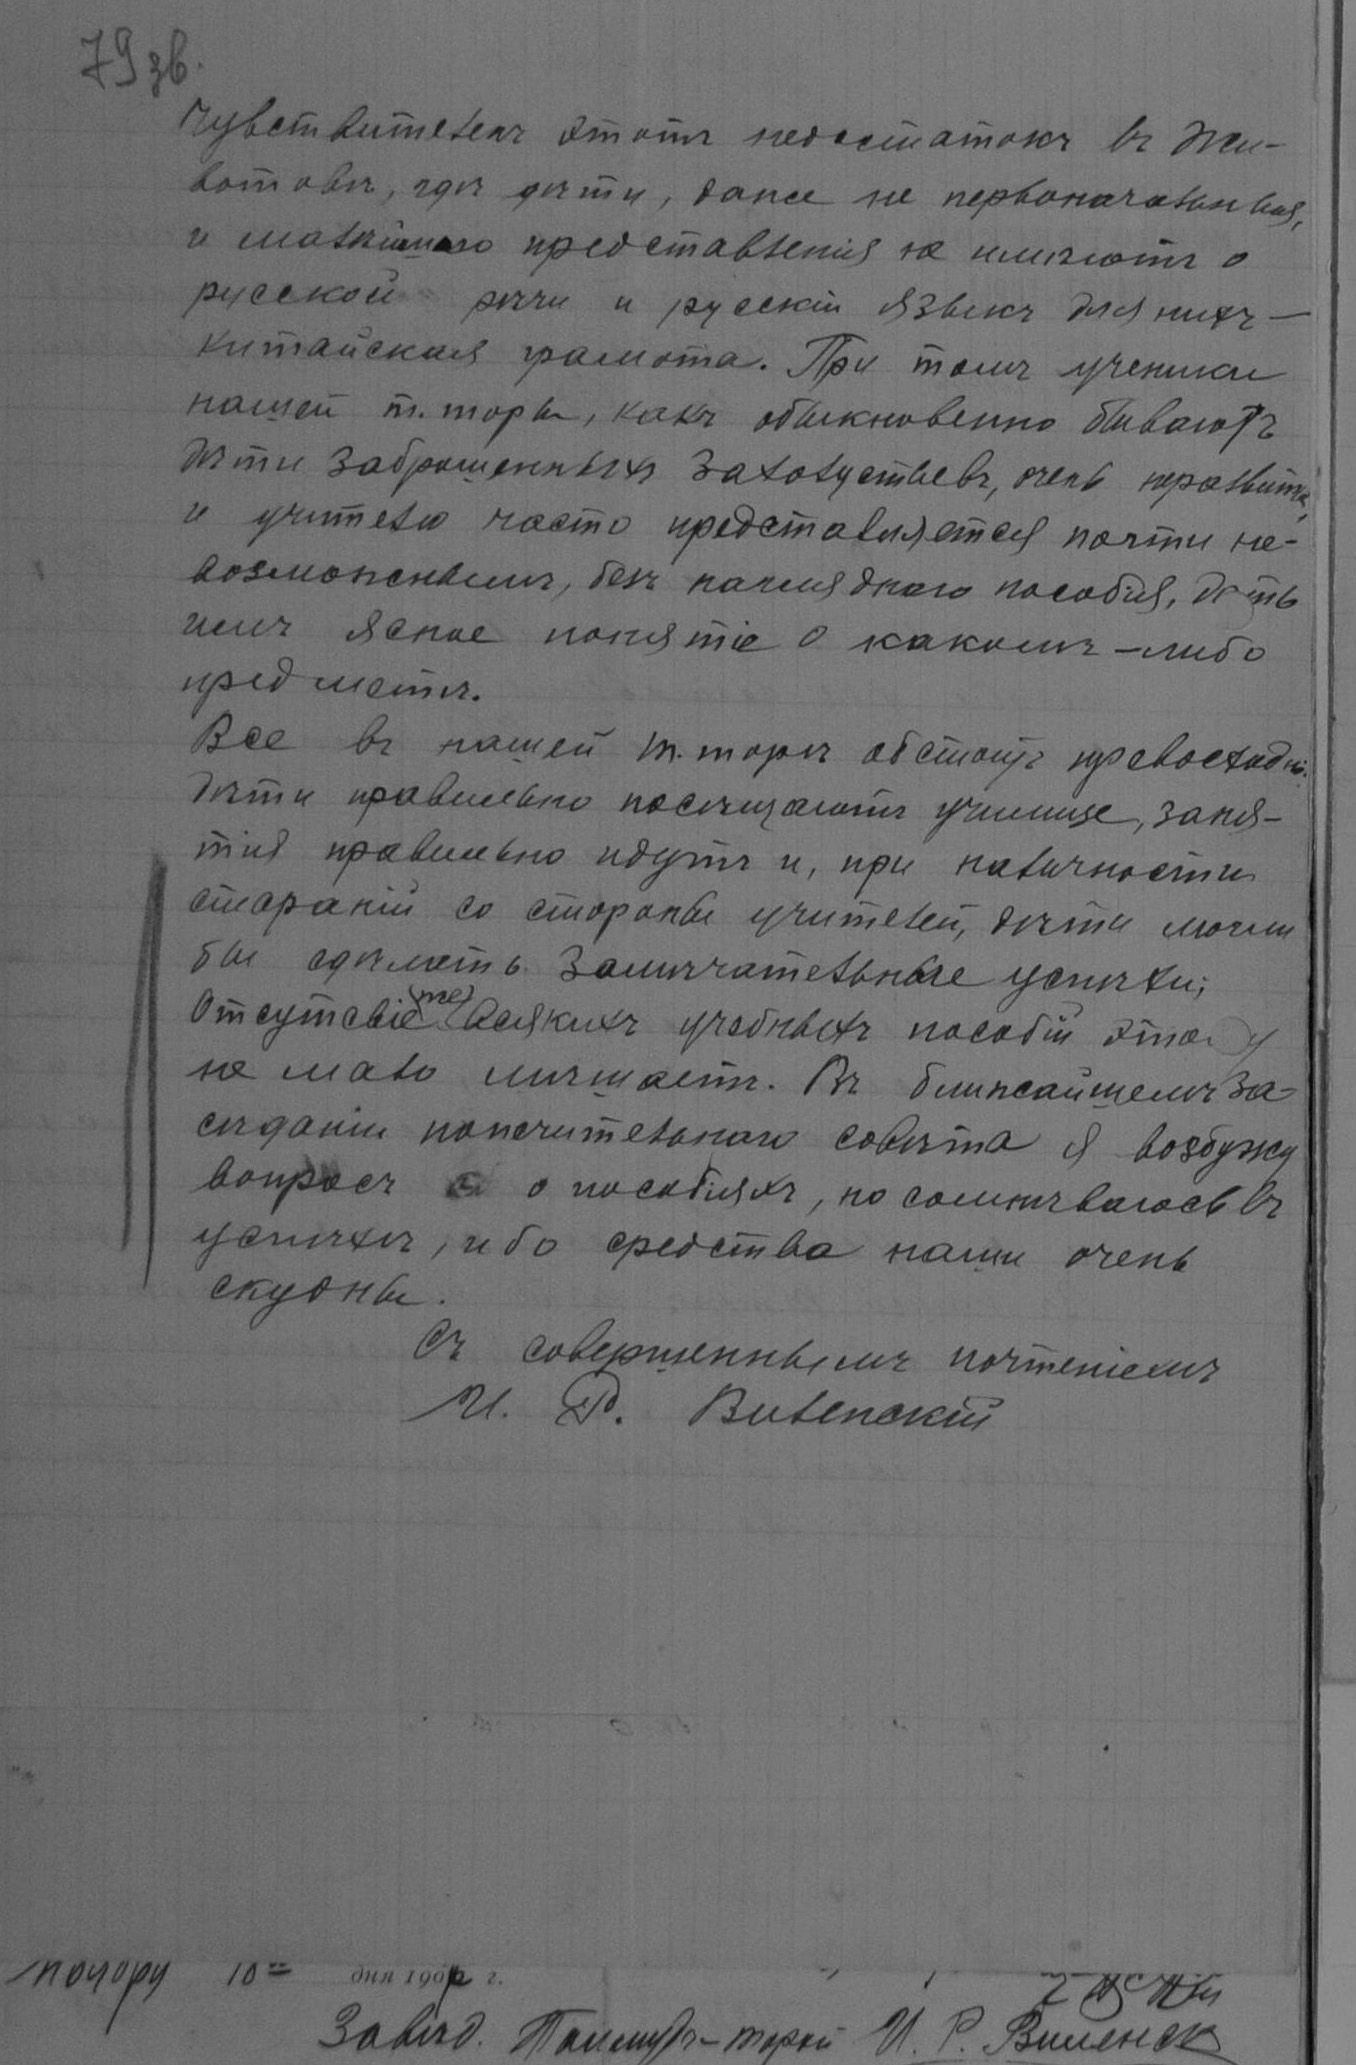 79 зв.
Чувствителенъ этотъ недостатокъ въ Жи-
вотовѣ, гдѣ дѣти, даже не первоначальныя,
и малѣйшаго представленія не имѣютъ о
русской рѣчи и русскій языкъ для нихъ —
китайская грамота. При томъ ученики
нашей т.торы, какъ обыкновенно бываютъ
дѣти заброшенныхъ захолустьевъ, очень неразвиты,
и учителю часто представляется почти не-
возможнымъ, безъ нагляднаго пособія, дать
имъ ясное понятіе о какомъ-либо
предметѣ.
Все въ нашей т.торѣ обстоитъ превосходно.
Дѣти правильно посѣщаютъ училище, заня-
тія правильно идутъ и, при наличности
стараній со стороны учителей, дѣти могли
бы сдѣлать замѣчательные успѣхи;
Отсутсвіе (же) всякихъ учебныхъ пособій этому
не мало мѣшаетъ. Въ ближайшемъ за-
сѣданіи попечительнаго совѣта я возбужу
вопросъ о пособіяхъ, но сомнѣваюсь въ
успѣхѣ, ибо средства наши очень
скудны.
Съ совершеннымъ почтеніемъ
И. Р. Виленскій
10 дня 190 г.
Завѣд. Талмудъ-торой И. Р. Виленск